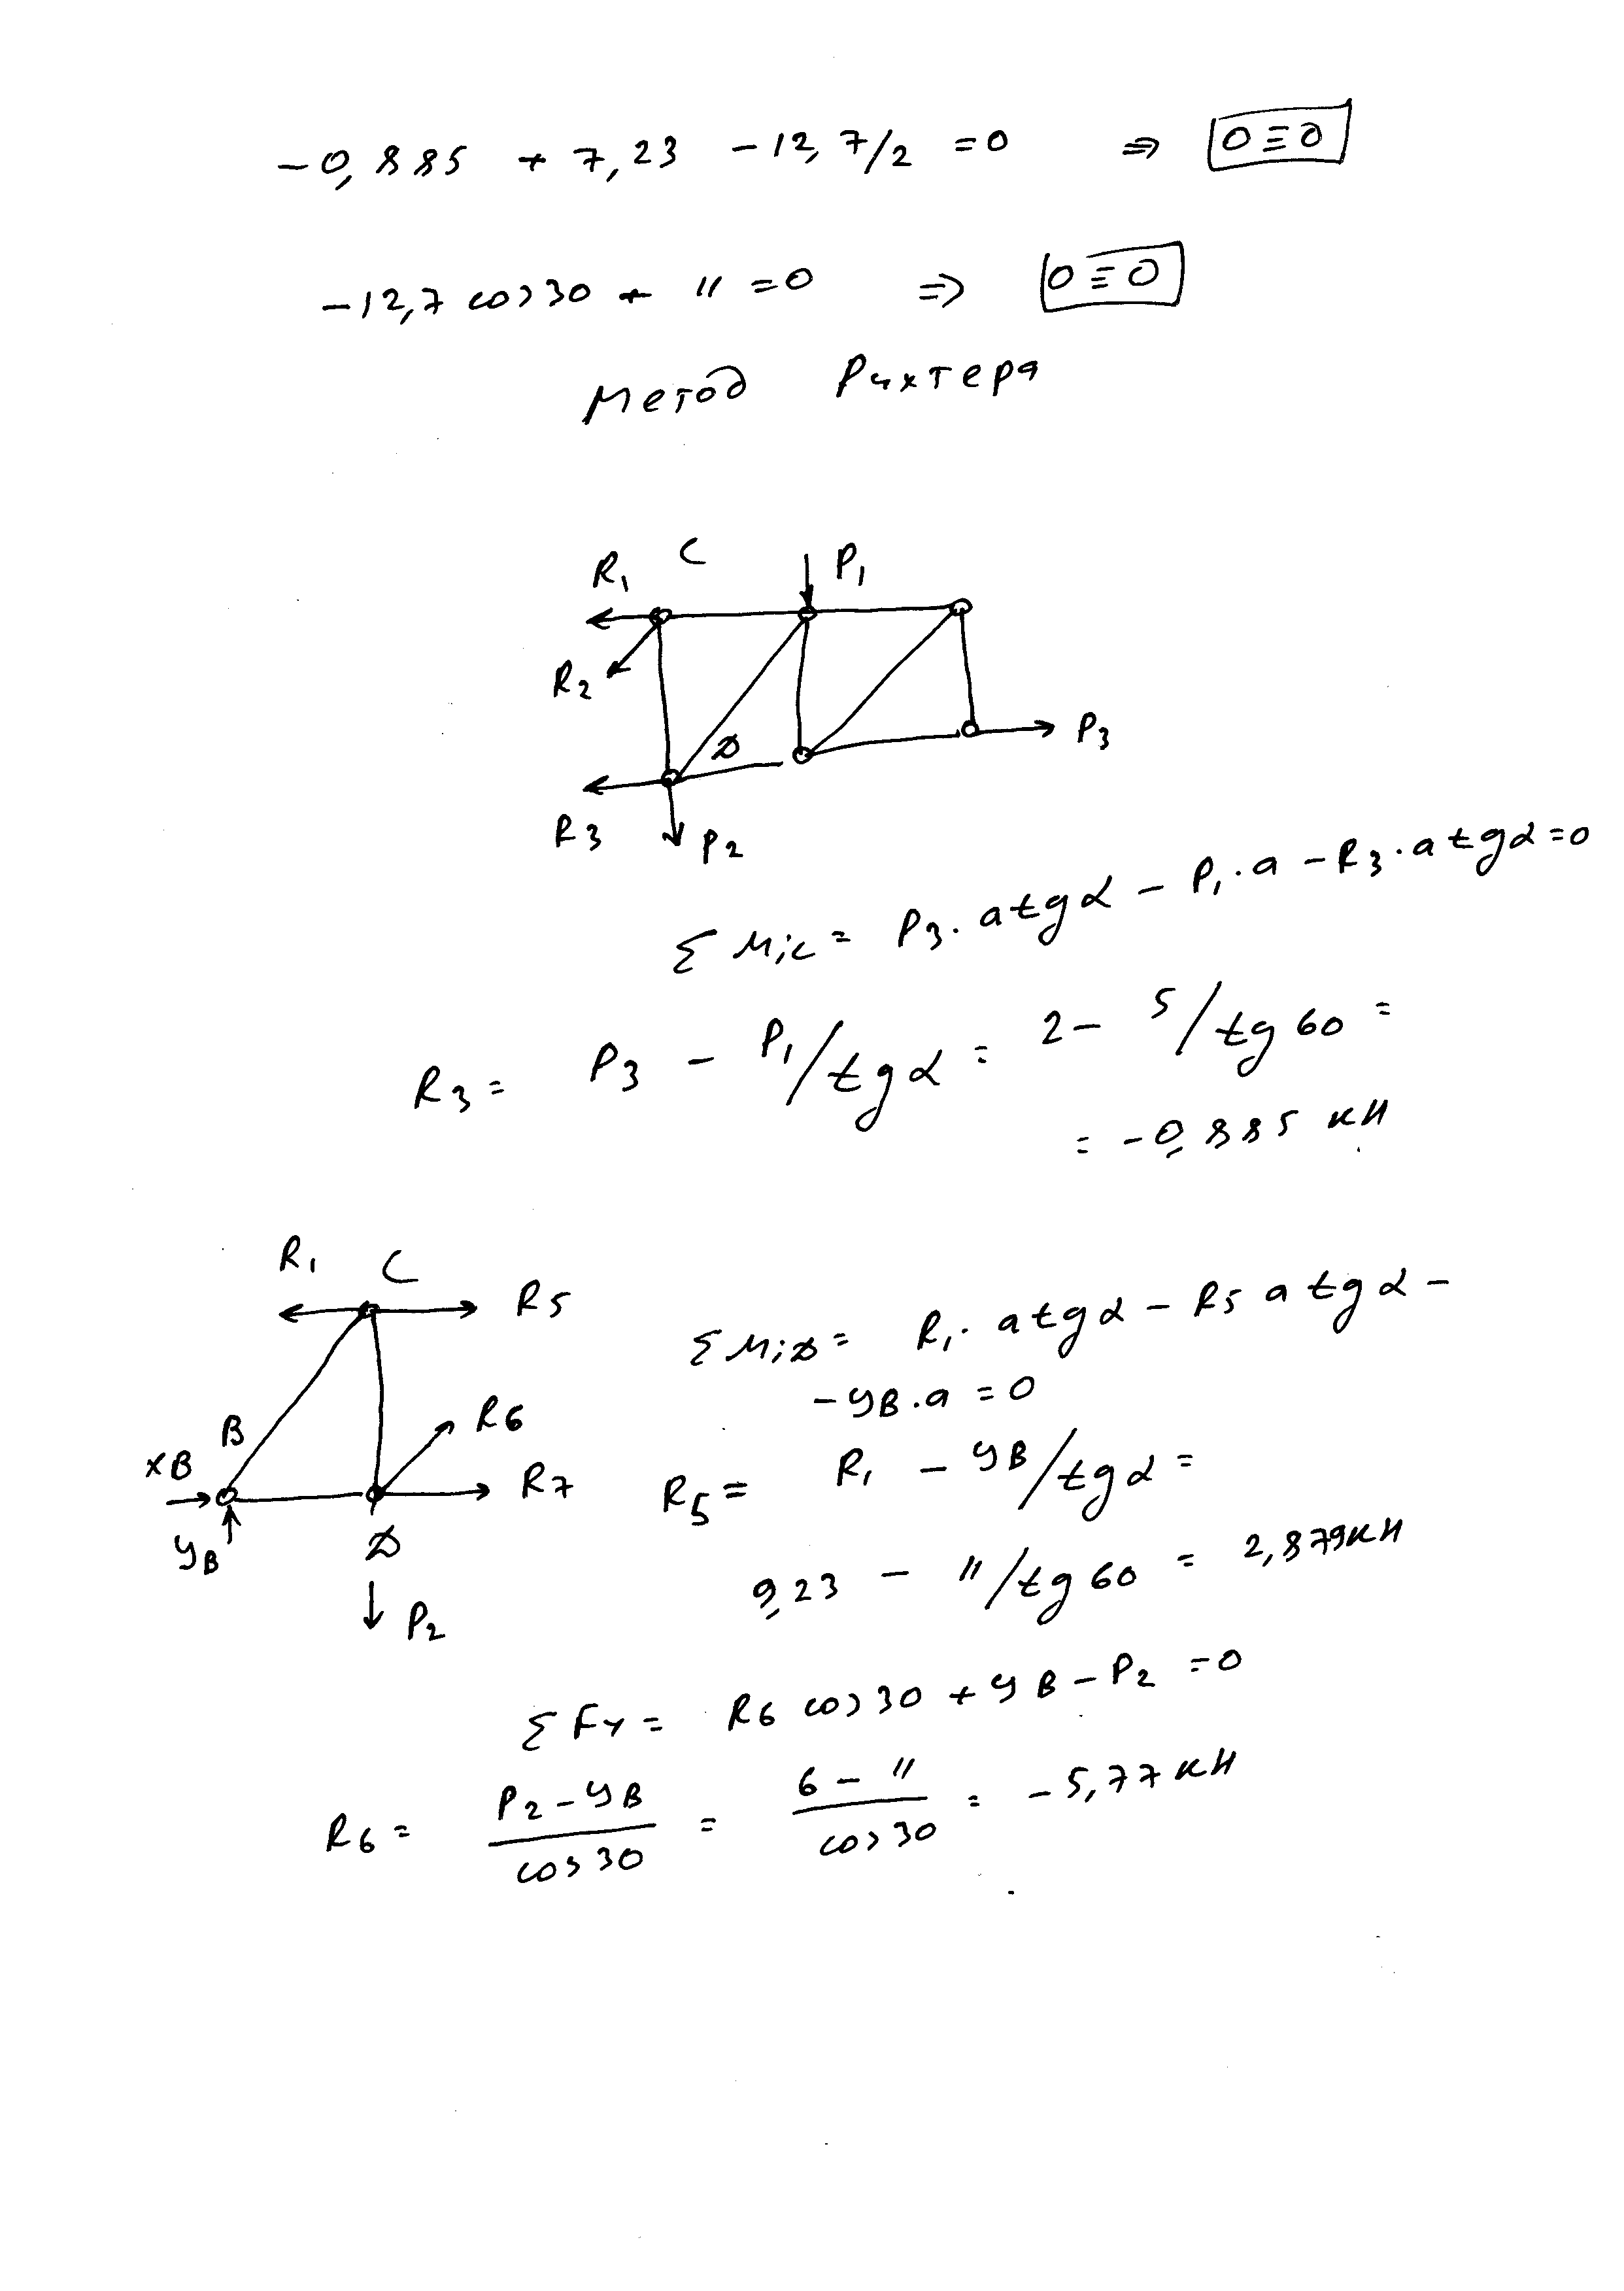 -0,885 + 7,23 - 12,7/2 = 0 ⇒ 0 ≡ 0
-12,7 cos 30 + 11 = 0 ⇒ 0 ≡ 0
Метод Рихтера
R1 C P1
R2
D P3
R3 P2
ΣMic = P3 · a tg α - P1 · a - R3 · a tg α = 0
R3 = P3 - P1/tg α = 2 - 5/tg 60 =
= -0,885 кН
R1 C R5
ΣMiD = R1 · a tg α - R5 a tg α -
- yB · a = 0
B R6
xB R7
R5 = R1 - yB/tg α =
yB D
9,23 - 11/tg 60 = 2,879 кН
P2
ΣFy = R6 cos 30 + yB - P2 = 0
R6 = P2 - yB / cos 30 = 6 - 11 / cos 30 = -5,77 кН